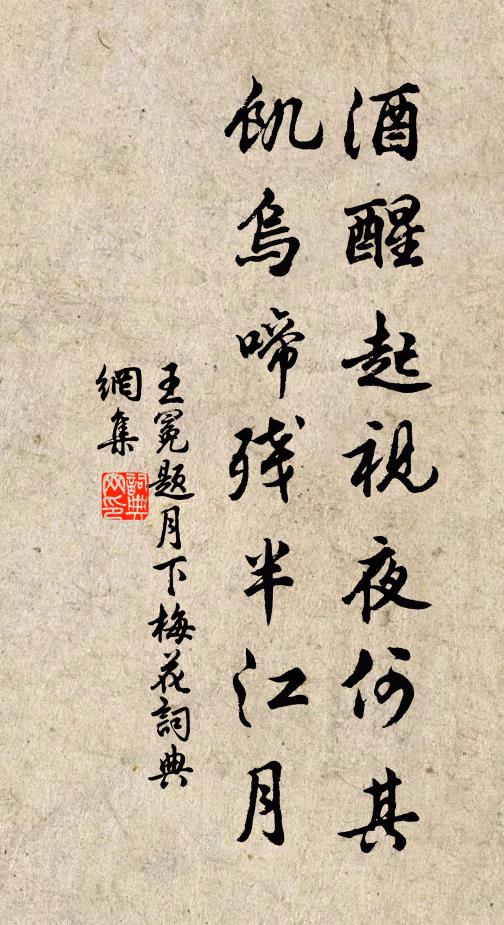 酒醒起視夜何其
飢烏啼残半江月
王冕题月下梅花詞典
網集
詞典
网印